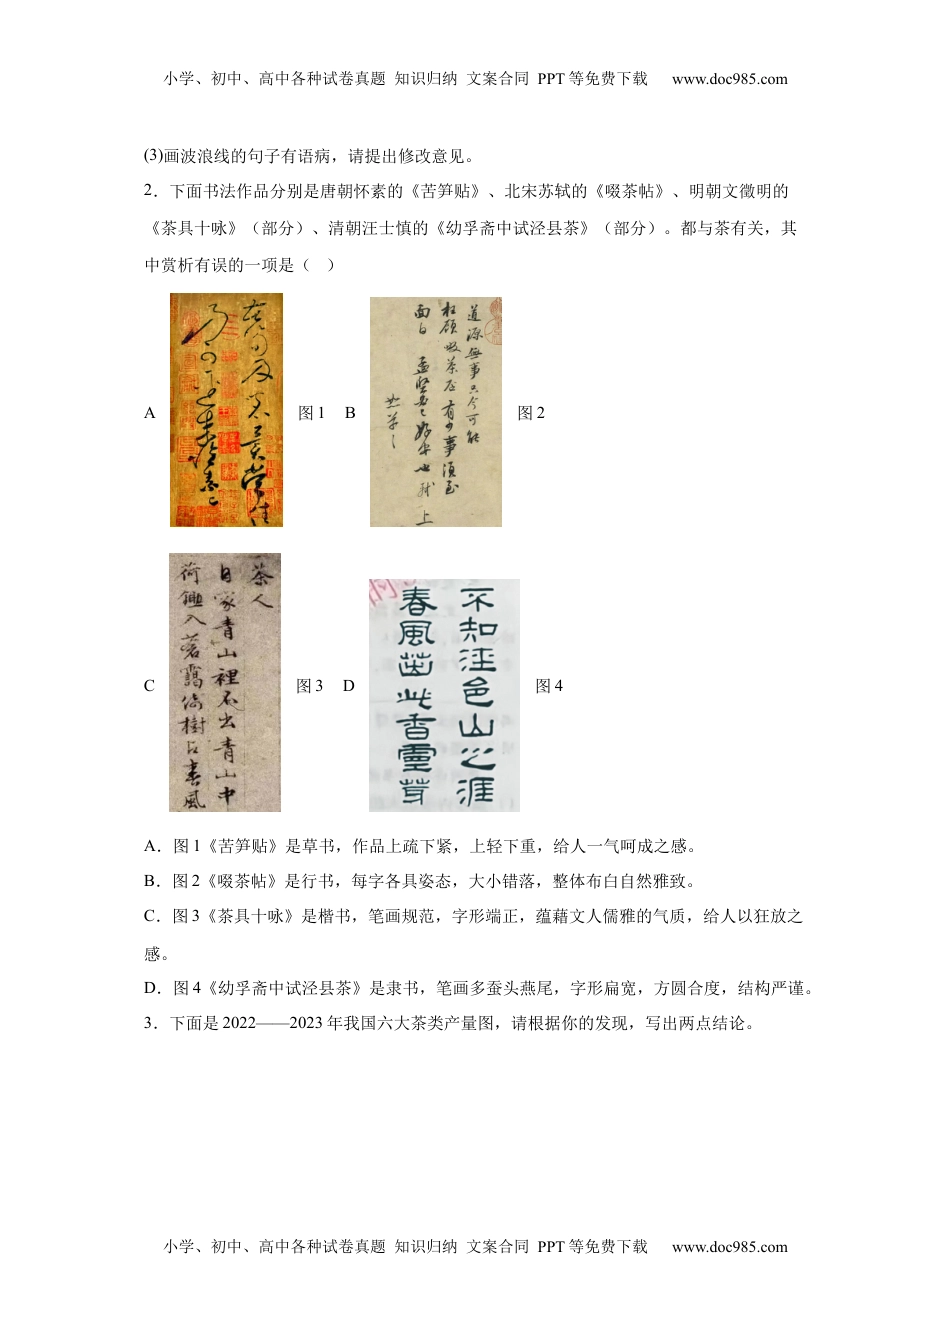 小学、初中、高中各种试卷真题 知识归纳 文案合同 PPT等免费下载 www.doc985.com
(3)画波浪线的句子有语病，请提出修改意见。
2．下面书法作品分别是唐朝怀素的《苦笋贴》、北宋苏轼的《啜茶帖》、明朝文徵明的
《茶具十咏》（部分）、清朝汪士慎的《幼孚斋中试泾县茶》（部分）。都与茶有关，其
中赏析有误的一项是（ ）
苦笋及茗异常佳
乃可迳来怀素上
A 图1 B
道源無事只今可能
枉顧啜茶否有少事須至
面白 孟堅必已好安也 軾上
图2
茶人
自家青山裡不出青山中
荷鋤入蒻靄倚樹占春風
C 图3 D
不知涇邑山之涯
春風茁此香靈芽
图4
A．图1《苦笋贴》是草书，作品上疏下紧，上轻下重，给人一气呵成之感。
B．图2《啜茶帖》是行书，每字各具姿态，大小错落，整体布白自然雅致。
C．图3《茶具十咏》是楷书，笔画规范，字形端正，蕴藉文人儒雅的气质，给人以狂放之
感。
D．图4《幼孚斋中试泾县茶》是隶书，笔画多蚕头燕尾，字形扁宽，方圆合度，结构严谨。
3．下面是2022——2023年我国六大茶类产量图，请根据你的发现，写出两点结论。
小学、初中、高中各种试卷真题 知识归纳 文案合同 PPT等免费下载 www.doc985.com